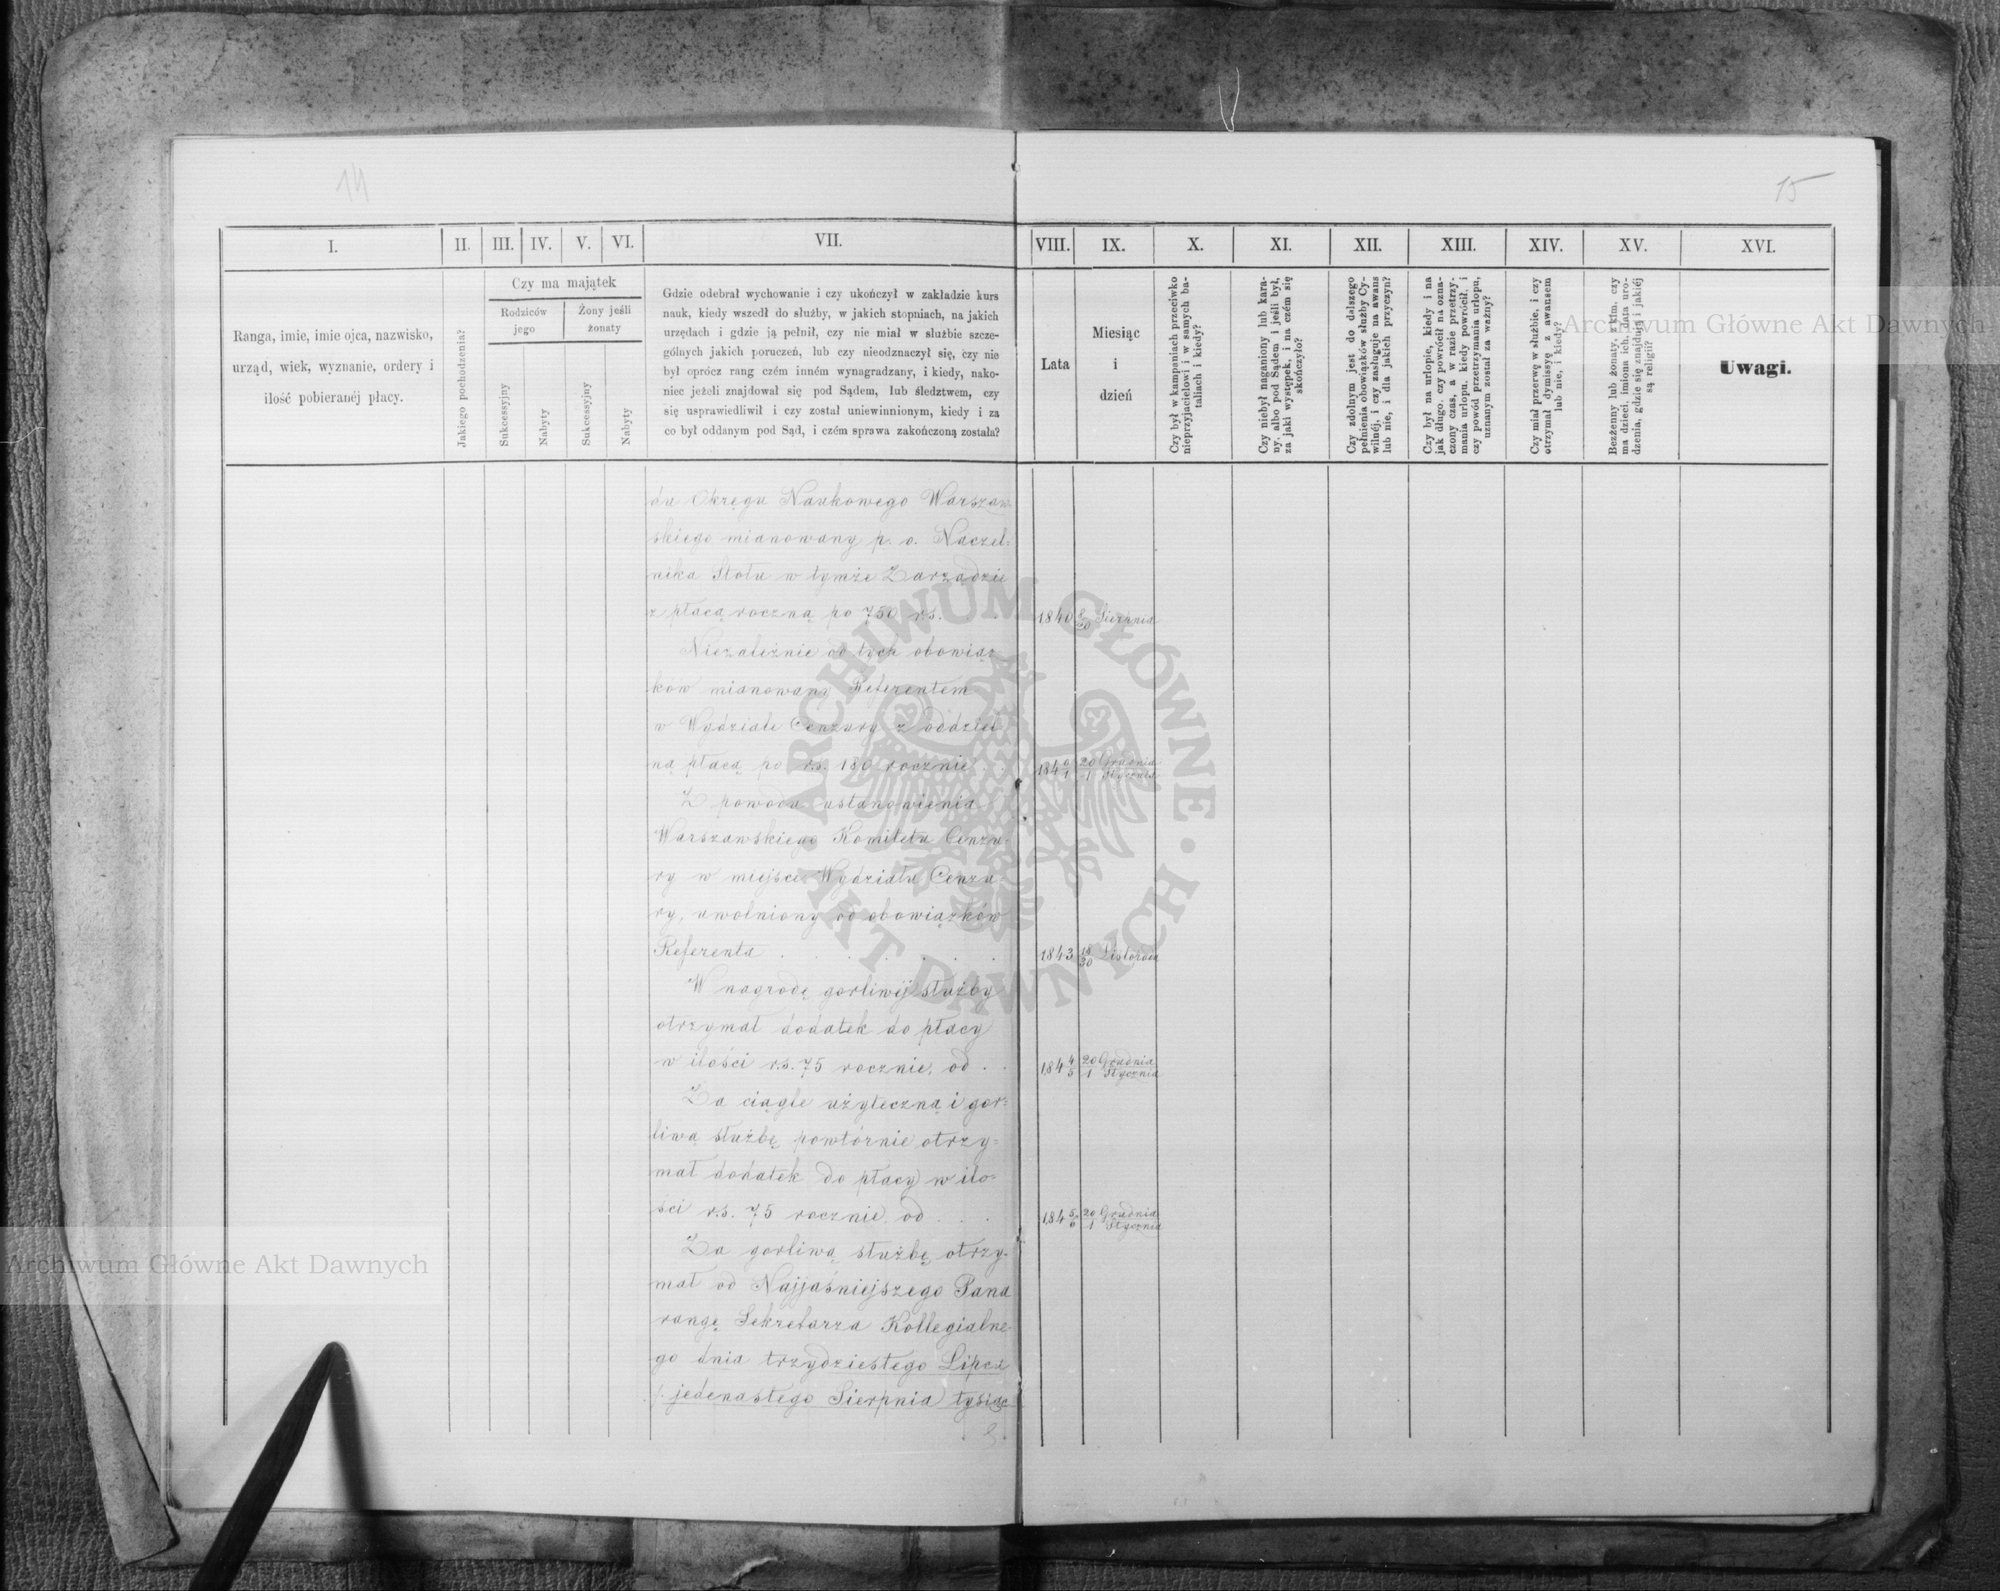 14
15
I.
II.
III.
IV.
V.
VI.
VII.
VIII.
IX.
X.
XI.
XII.
XIII.
XIV.
XV.
XVI.
Ranga, imie, imie ojca, nazwisko,
urząd, wiek, wyznanie, ordery i
ilość pobieranéj płacy.
Jakiego pochodzenia?
Czy ma majątek
Rodziców
jego
Żony jeśli
żonaty
Sukcessyjny
Nabyty
Sukcessyjny
Nabyty
Gdzie odebrał wychowanie i czy ukończył w zakładzie kurs
nauk, kiedy wszedł do służby, w jakich stopniach, na jakich
urzędach i gdzie ją pełnił, czy nie miał w służbie szcze-
gólnych jakich poruczeń, lub czy nieodznaczył się, czy nie
był oprócz rang czém inném wynagradzany, i kiedy, nako-
niec jeżeli znajdował się pod Sądem, lub śledztwem, czy
się usprawiedliwił i czy został uniewinnionym, kiedy i za
co był oddanym pod Sąd, i czém sprawa zakończoną została?
Lata
Miesiąc
i
dzień
Czy był w kampaniach przeciwko
nieprzyjacielowi i w samych ba-
taliach i kiedy?
Czy niebył naganiony lub kara-
ny, albo pod Sądem i jeśli był,
za jaki występek, i na czém się
skończyło?
Czy zdolnym jest do dalszego
pełnienia obowiązków służby Cy-
wilnéj, i czy zasługuje na awans
lub nie, i dla jakich przyczyn?
Czy był na urlopie, kiedy i na
jak długo, czy powrócił na ozna-
czony czas, a w razie przetrzy-
mania urlopu, kiedy powrócił, i
czy powód przetrzymania urlopu,
uznanym został za ważny?
Czy miał przerwę w służbie, i czy
otrzymał dymissyę z awansem
lub nie, i kiedy?
Bezżenny lub żonaty, z kim, czy
ma dzieci, imiona ich, data uro-
dzenia, gdzie się znajdują i jakiéj
są religii?
Uwagi.
du Okręgu Naukowego Warszaw-
skiego mianowany p. o. Naczel=
nika Stołu w tymże Zarządzie
z płacą roczną po 750 rs. 1840 8/20 Sierpnia
Niezależnie od tych obowiąz
ków mianowany Referentem
w Wydziale Cenzury z oddziel
ną płacą po rs. 180 rocznie 184 0/1 20 Grudnia / 1 Stycznia
Z powodu ustanowienia
Warszawskiego Komitetu Cenzu-
ry w miejsce Wydziału Cenzu-
ry, uwolniony od obowiązków
Referenta . . . . . . 1843 18/30 Listopada
W nagrodę gorliwéj służby
otrzymał dodatek do płacy
w ilości rs. 75 rocznie, od . . 184 4/5 20 Grudnia / 1 Stycznia
Za ciągle użyteczną i gor=
liwą służbę powtórnie otrzy=
mał dodatek do płacy w ilo=
ści rs. 75 rocznie, od . . . 184 5/6 20 Grudnia / 1 Stycznia
Za gorliwą służbę otrzy-
mał od Najjaśniejszego Pana
rangę Sekretarza Kollegialne-
go dnia trzydziestego Lipca
/. jedenastego Sierpnia tysiąc
ARCHIWUM GŁÓWNE · AKT DAWNYCH ·
Archiwum Główne Akt Dawnych
Archiwum Główne Akt Dawnych